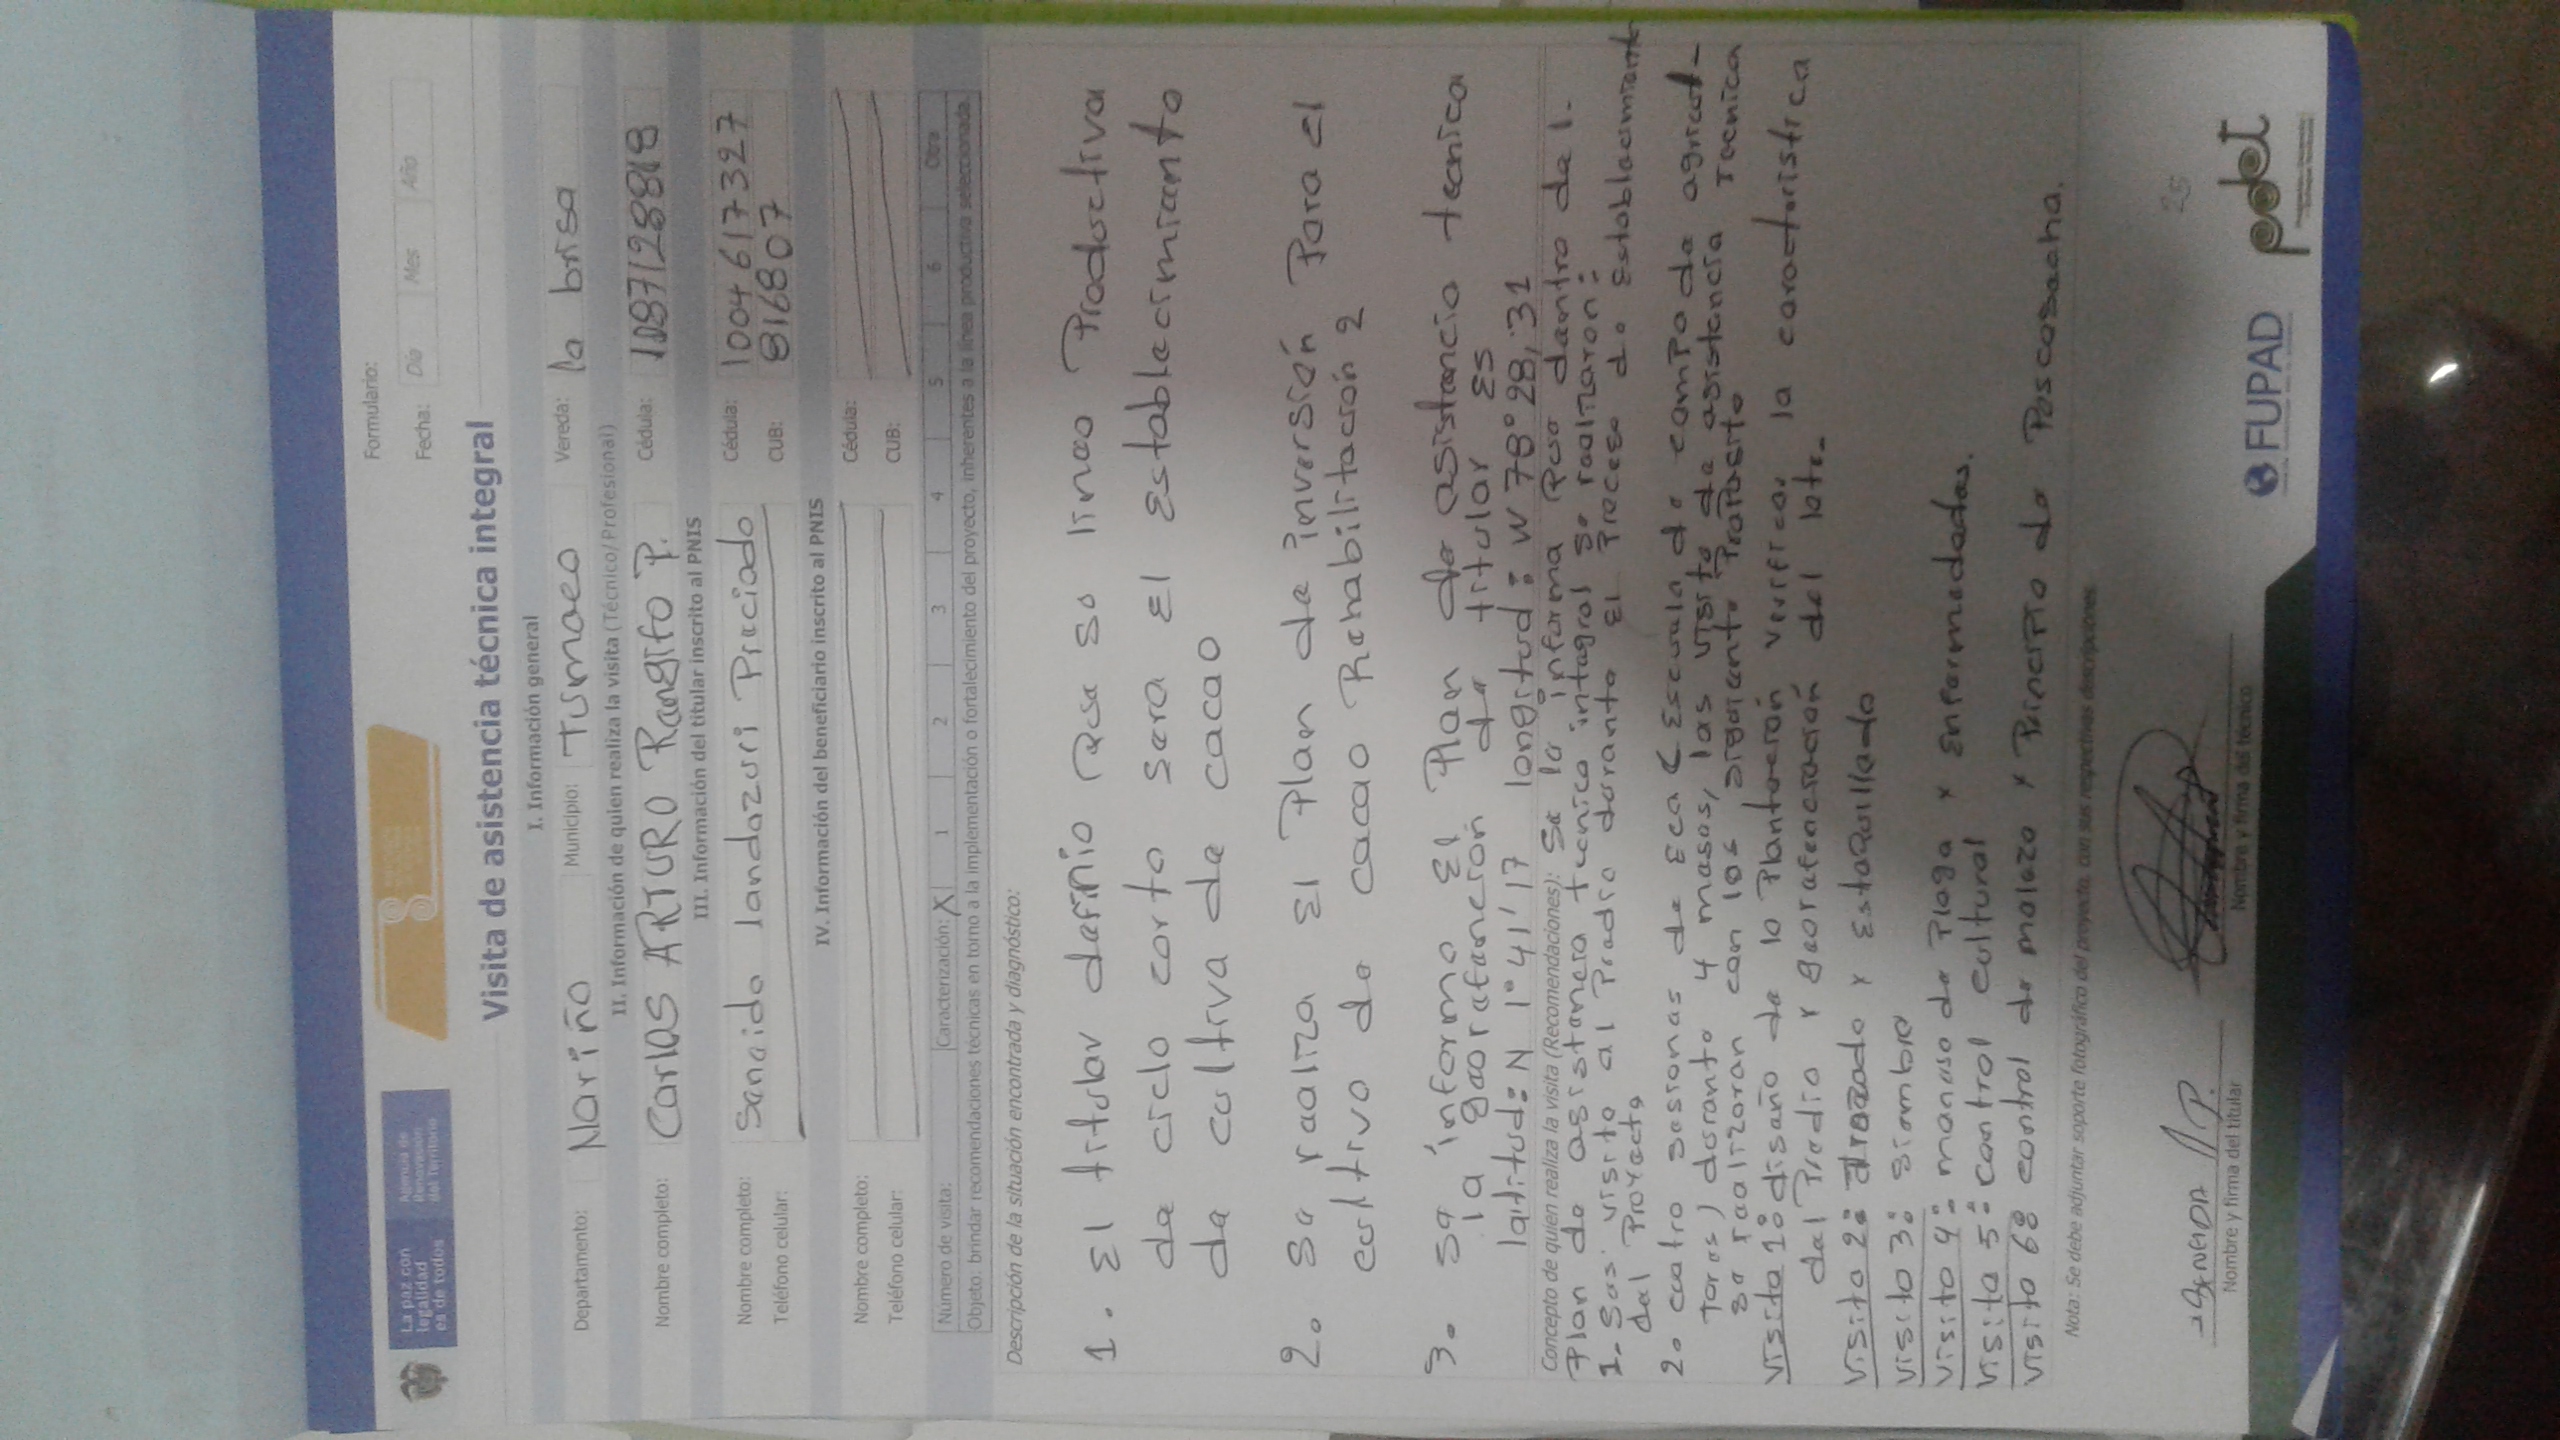 La paz con
legalidad
es de todos
Agencia de
Renovación
del Territorio
Formulario:
Fecha: Día Mes Año
Visita de asistencia técnica integral
I. Información general
Departamento: Nariño Municipio: Tumaco Vereda: la brisa
II. Información de quien realiza la visita (Técnico/Profesional)
Nombre completo: Carlos ARTURO Rengifo P. Cédula: 1087128818
III. Información del titular inscrito al PNIS
Nombre completo: Senaida landazuri Preciado Cédula: 1004617327
Teléfono celular: CUB: 816807
IV. Información del beneficiario inscrito al PNIS
Nombre completo: Cédula:
Teléfono celular: CUB:
Número de visita: Caracterización: X 1 2 3 4 5 6 Otra
Objeto: brindar recomendaciones técnicas en torno a la implementación o fortalecimiento del proyecto, inherentes a la línea productiva seleccionada.
Descripción de la situación encontrada y diagnóstico:
1. El titular definio que su linea Productiva
de ciclo corto sera el Establecimiento
de cultivo de cacao
2. se realiza El Plan de inversión Para el
cultivo de cacao Rehabilitación 2
3. se informo El Plan de asistencia tecnica
la georefención de titular Es
latitud: N 1° 41' 17 longitud: W 78° 28, 31
Concepto de quien realiza la visita (Recomendaciones): Se le informa que dentro de l.
Plan de asistencia tecnica integral se realizaron:
1. Seis visita al Predio durante El Proceso de Establecimiento
del Proyecto
2. cuatro sesiones de Eca (Escuela de campo de agricul-
tores) durante 4 meses, las visita de asistencia Tecnica
se realizaran con los siguiente Proposito
Visita 1: diseño de la Plantación Verificar la caracteristica
del Predio y georefenciación del lote.
Visita 2: trazado y Estaquillado
Visita 3: siembra
Visita 4: manejo de Plaga y Enfermedades.
Visita 5: control cultural
Visita 6: control de maleza y Principio de Poscosecha.
Nota: Se debe adjuntar soporte fotográfico del proyecto, con sus respectivas descripciones.
Nombre y firma del titular
Nombre y firma del técnico
25
FUPAD
pdet